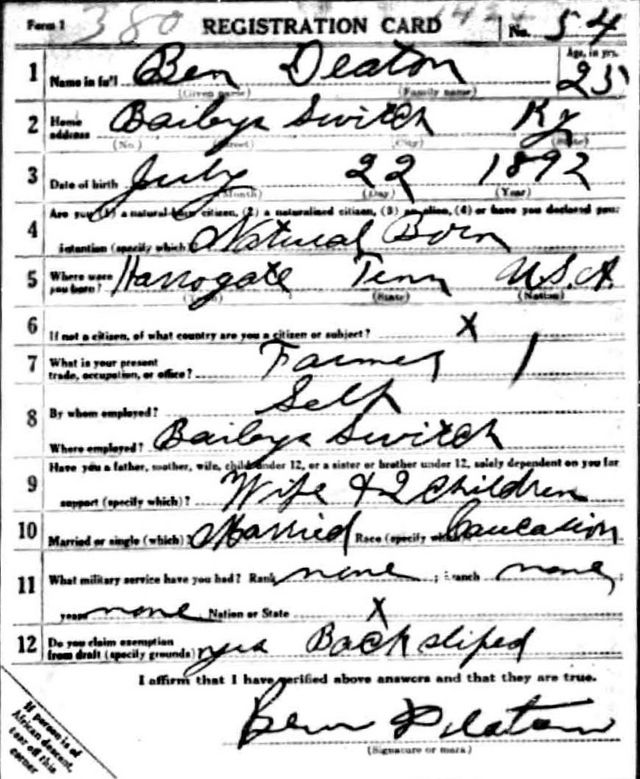 Form 1 380 REGISTRATION CARD No. 54
1 Name in full Ben Deaton Age, in yrs. 25
(Given name) (Family name)
2 Home address Baileys Switch Ky
(No.) (Street) (City) (State)
3 Date of birth July 22 1892
(Month) (Day) (Year)
Are you (1) a natural-born citizen, (2) a naturalized citizen, (3) an alien, (4) or have you declared your
4 intention (specify which)? Natural Born
5 Where were you born? Harrogate Tenn U.S.A.
(Town) (State) (Nation)
6 If not a citizen, of what country are you a citizen or subject? X
7 What is your present trade, occupation, or office? Farmer 1
8 By whom employed? Self
Where employed? Baileys Switch
Have you a father, mother, wife, child under 12, or a sister or brother under 12, solely dependent on you for
9 support (specify which)? Wife & 2 Children
10 Married or single (which)? Married Race (specify which)? Caucasion
11 What military service have you had? Rank none ; branch none ;
years none Nation or State X
12 Do you claim exemption from draft (specify grounds)? yes Back sliped
I affirm that I have verified above answers and that they are true.
Ben Deaton
(Signature or mark)
If person is of
African descent,
tear off this
corner